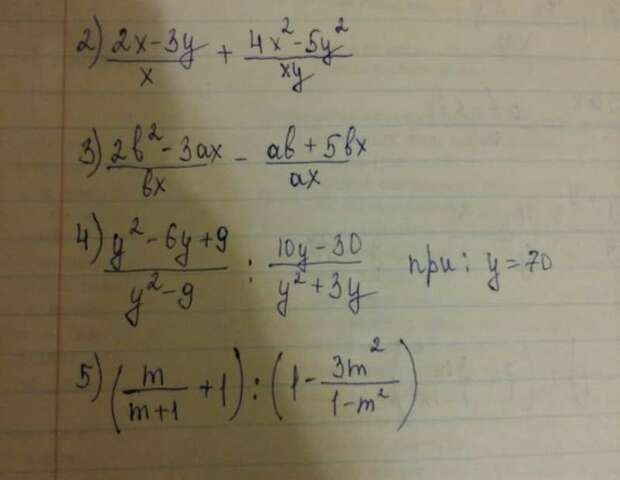 2) (2x-3y)/x + (4x²-5y²)/(xy)
3) (2b²-3ax)/(bx) - (ab+5bx)/(ax)
4) (y²-6y+9)/(y²-9) : (10y-30)/(y²+3y) при: y=70
5) (m/(m+1) + 1) : (1 - 3m²/(1-m²))